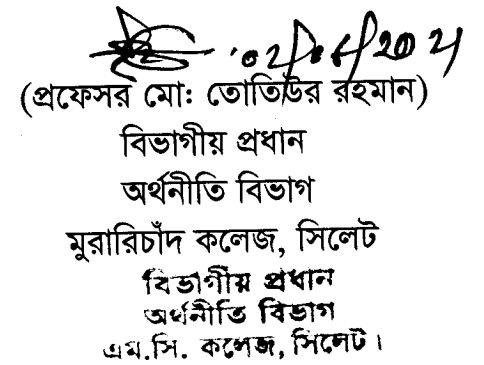 02/06/2021
(প্রফেসর মো: তোতিউর রহমান)
বিভাগীয় প্রধান
অর্থনীতি বিভাগ
মুরারিচাঁদ কলেজ, সিলেট
বিভাগীয় প্রধান
অর্থনীতি বিভাগ
এম.সি. কলেজ, সিলেট।